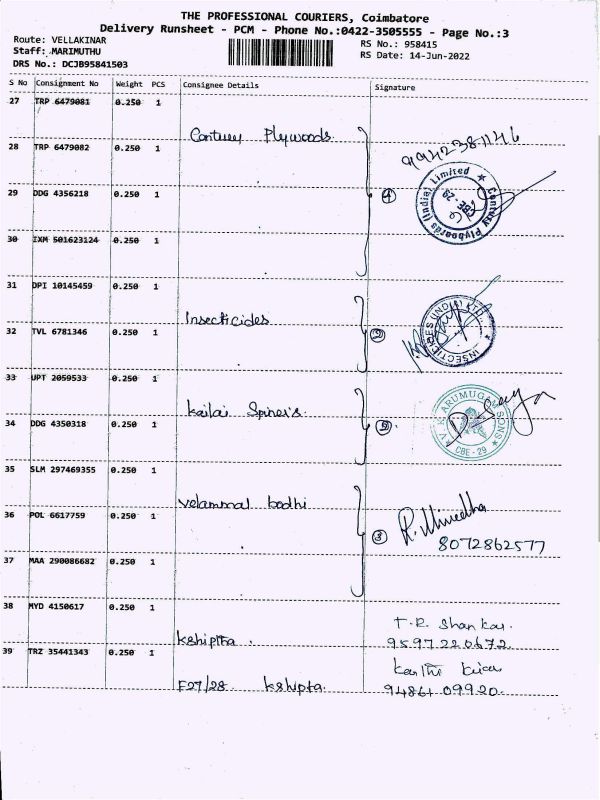 THE PROFESSIONAL COURIERS, Coimbatore
Delivery Runsheet - PCM - Phone No.:0422-3505555 - Page No.:3
Route: VELLAKINAR
RS No.: 958415
Staff: MARIMUTHU
RS Date: 14-Jun-2022
DRS No.: DCJB95841503
S No Consignment No Weight PCS Consignee Details Signature
27 TRP 6479081 0.250 1
Century Plywoods
9942381146
28 TRP 6479082 0.250 1
Century Plyboards (India) Limited
CBE-29
29 DDG 4356218 0.250 1
4
30 IXM 501623124 0.250 1
31 DPI 10145459 0.250 1
Insecticides
2
INSECTICIDES (INDIA) LTD.
32 TVL 6781346 0.250 1
33 UPT 2059533 0.250 1
Kailai Spiners
V.K. ARUMUGAM SONS
CBE - 29
34 DDG 4350318 0.250 1
35 SLM 297469355 0.250 1
velammal bodhi
36 POL 6617759 0.250 1
3
8072862577
37 MAA 290086682 0.250 1
38 MYD 4150617 0.250 1
T.R. Shankar.
Kshiptha.
9597220672
39 TRZ 35441343 0.250 1
F27/28. kshipta.
94861 09920.